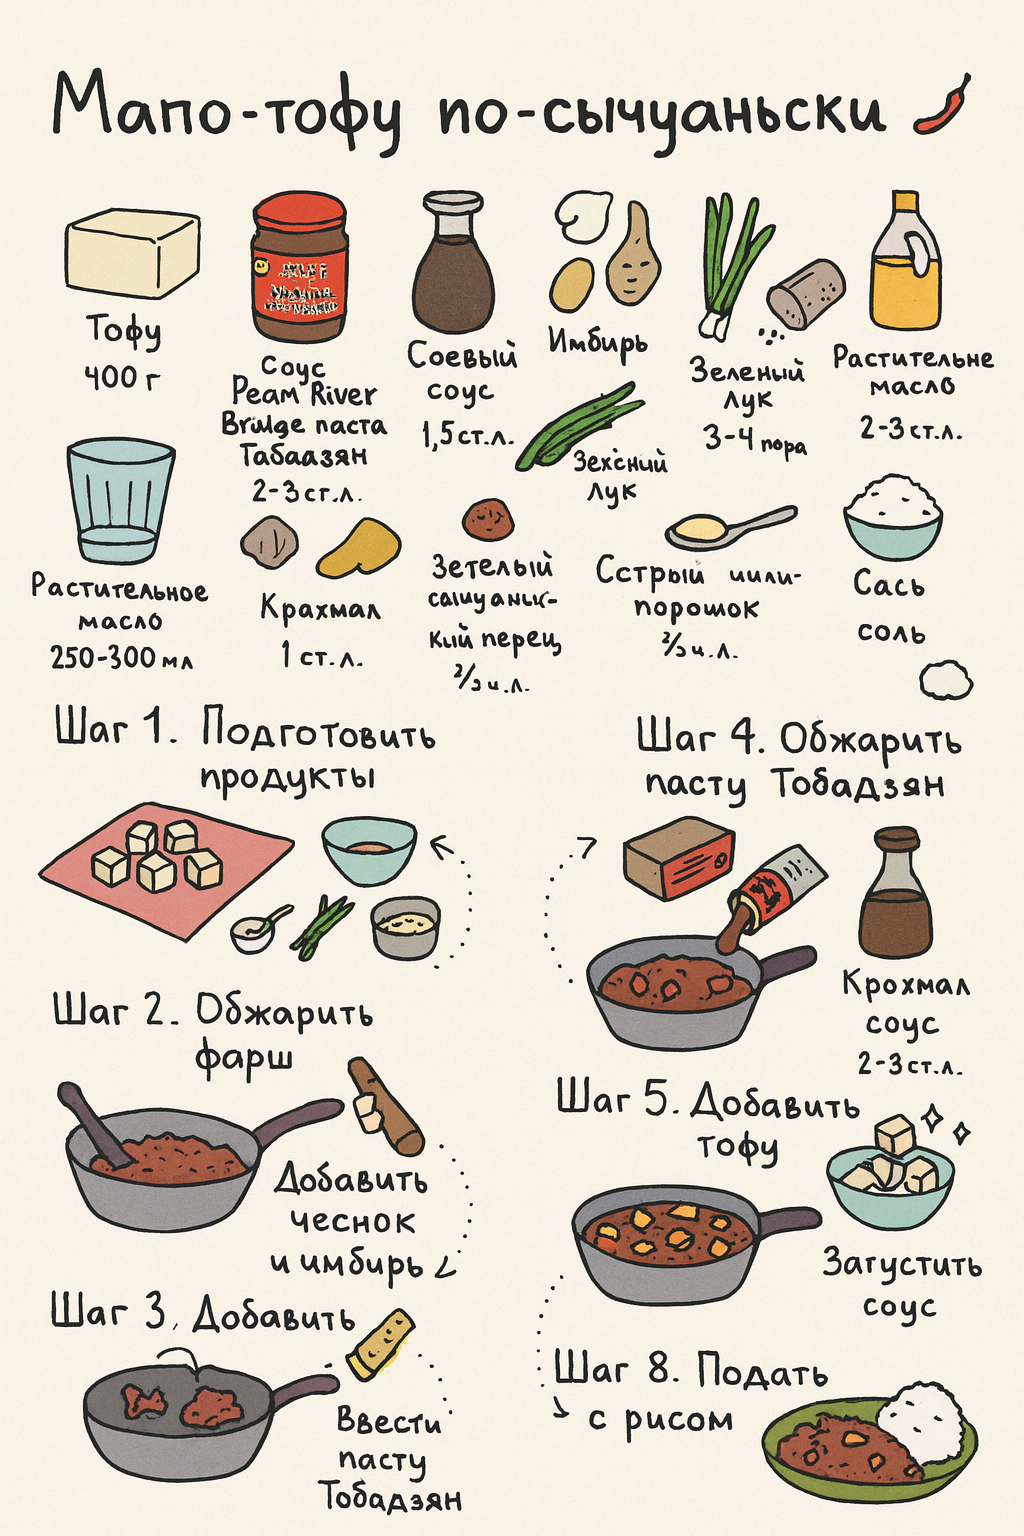 Мапо-тофу по-сычуаньски
Тофу
400 г
Соус
Peam River
Bridge паста
Табаазян
2-3 ст.л.
Соевый
соус
1,5 ст.л.
Имбирь
Зеленый
лук
3-4 пора
Растительне
масло
2-3 ст.л.
Зехсний
лук
Растительное
масло
250-300 мл
Крахмал
1 ст.л.
Зетелый
кий перец
Сстрый чили-
порошок
Сась
соль
Шаг 1. Подготовить
продукты
Шаг 2. Обжарить
фарш
Добавить
чеснок
и имбирь
Шаг 3, Добавить
Ввести
пасту
Тобадзян
Шаг 4. Обжарить
пасту Тобадзян
Крохмал
соус
2-3 ст.л.
Шаг 5. Добавить
тофу
Загустить
соус
Шаг 8. Подать
с рисом